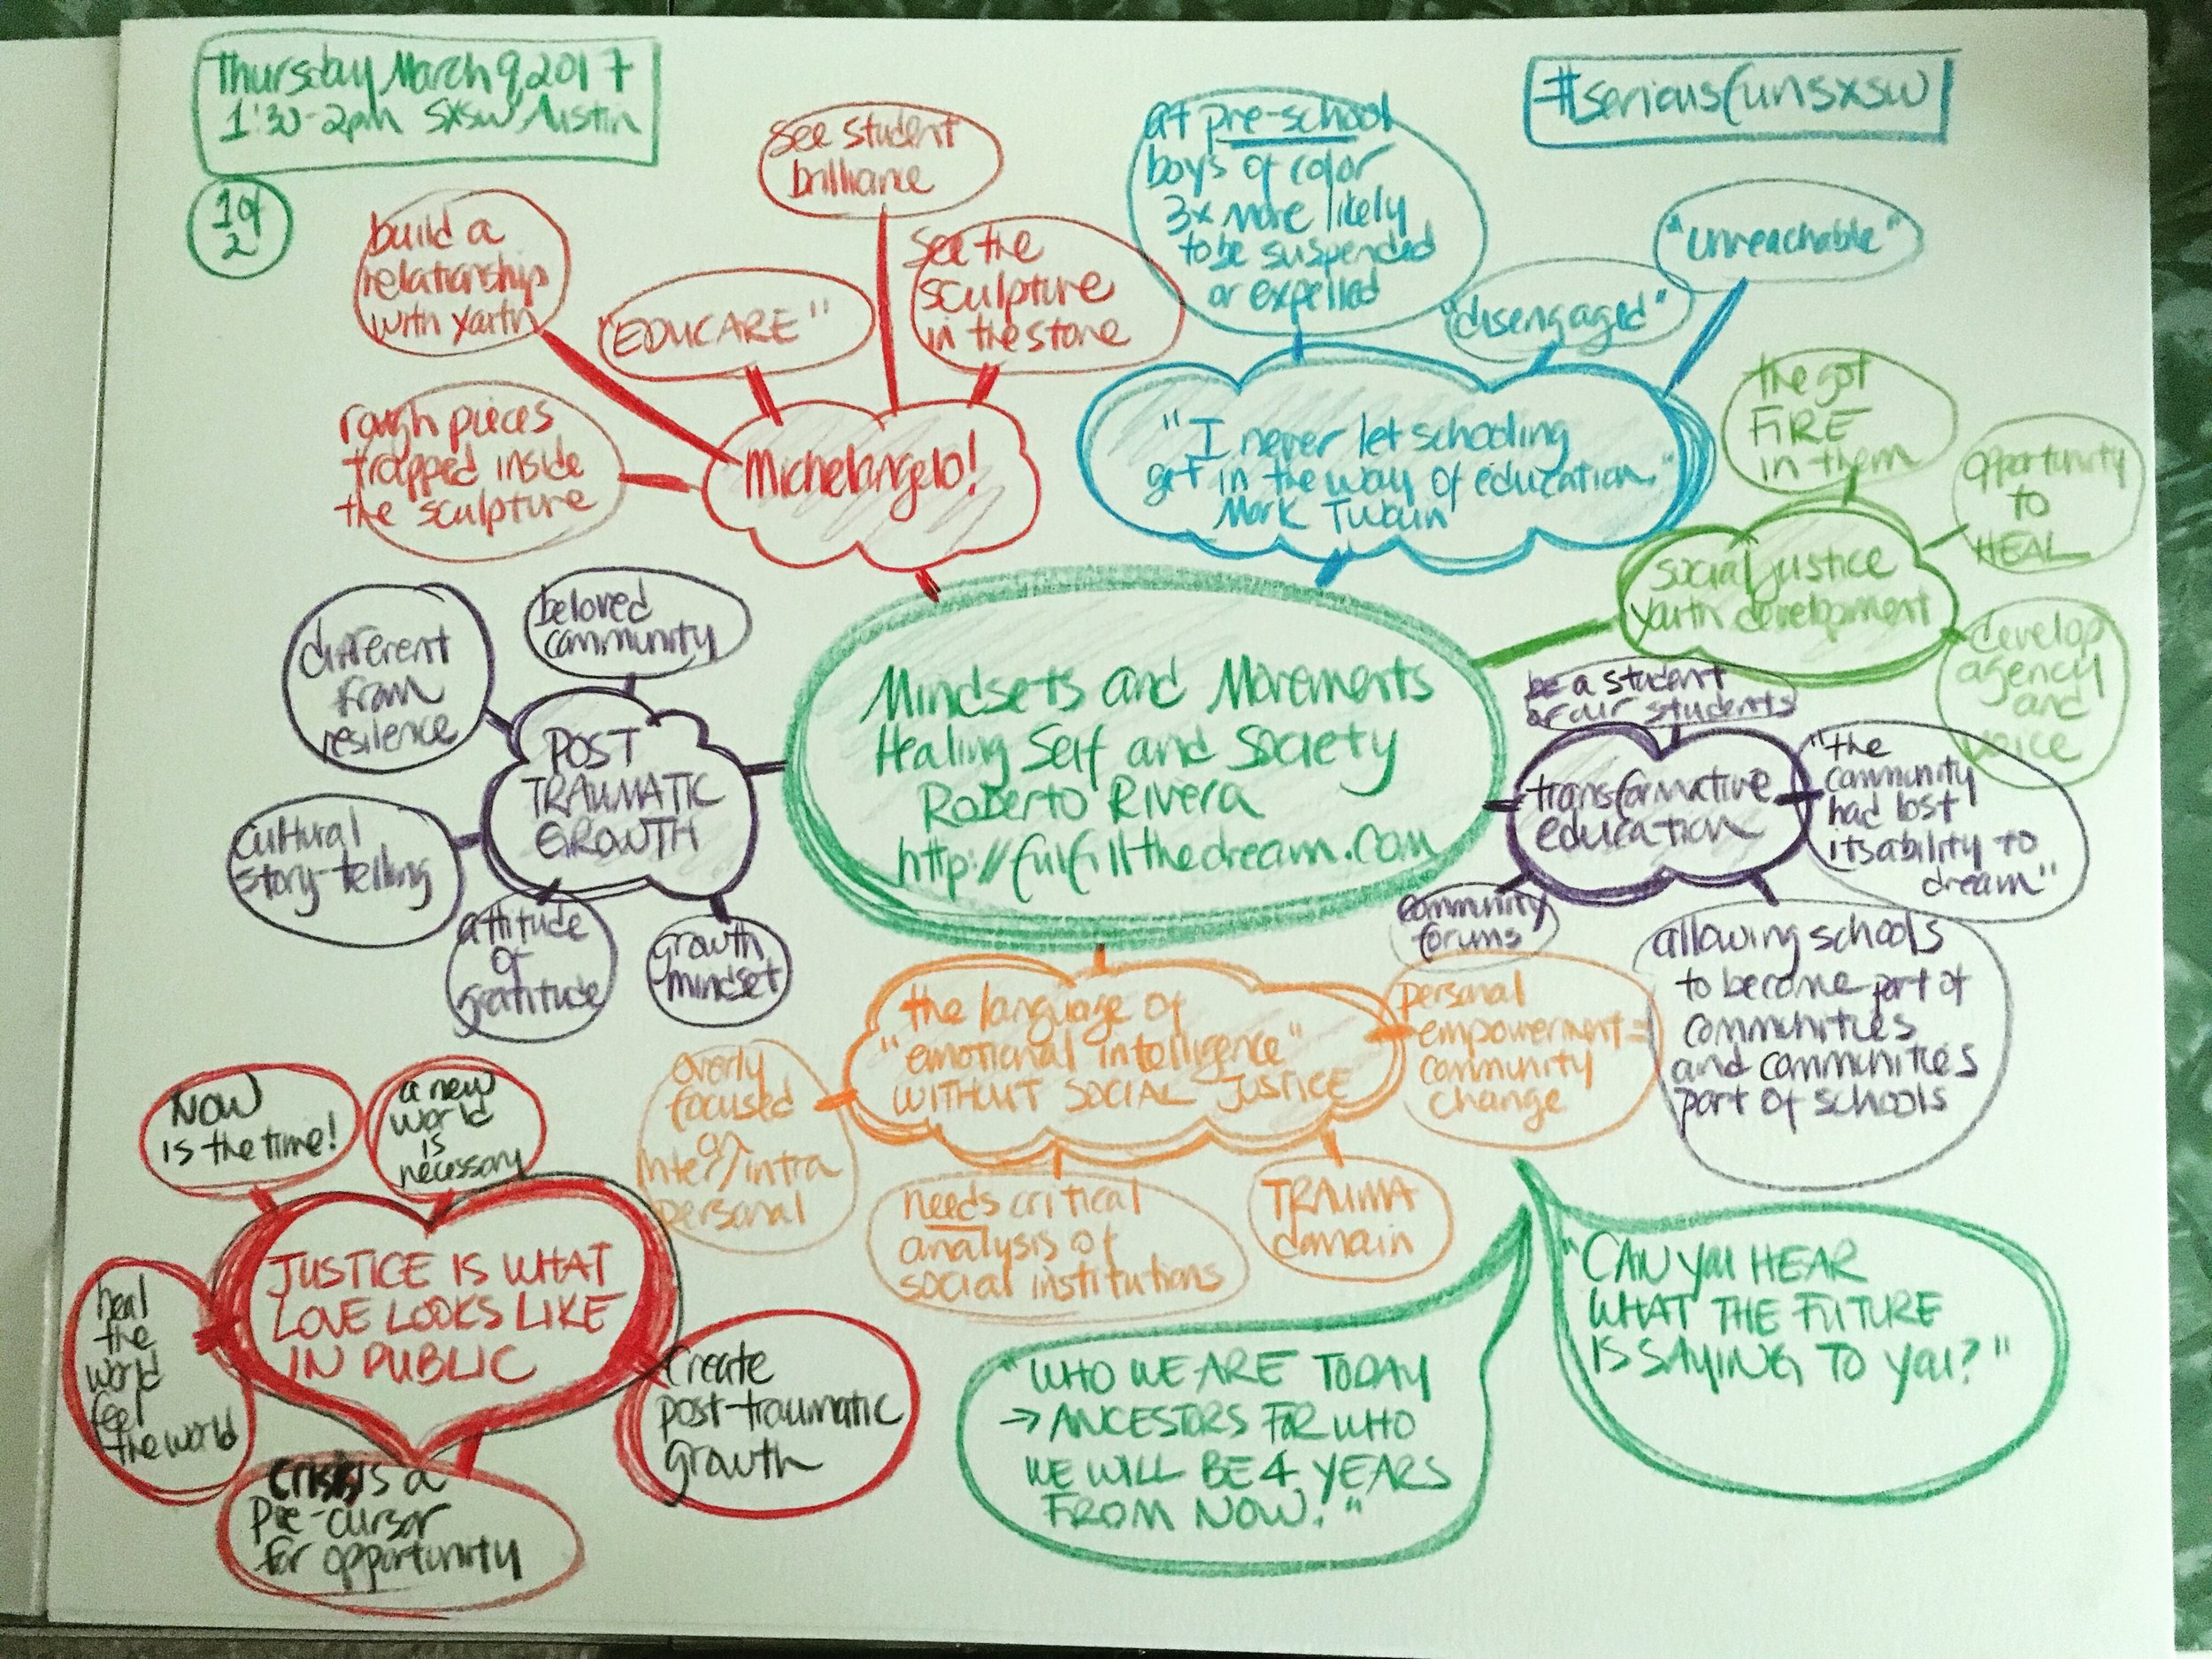 Thursday March 9, 2017
1:30-2pm SXSW Austin
1 of
2
#seriousfunsxsw
see student
brilliance
build a
relationship
with youth
"EDUCARE"
see the
sculpture
in the stone
rough pieces
trapped inside
the sculpture
Michelangelo!
at pre-school
boys of color
3x more likely
to be suspended
or expelled
"disengaged"
"unreachable"
"I never let schooling
get in the way of education."
Mark Twain
the got
FIRE
in them
opportunity
to
HEAL
social justice
youth development
develop
agency
and
voice
Mindsets and Movements
Healing Self and Society
Roberto Rivera
http://fulfillthedream.com
beloved
community
different
from
resilence
POST
TRAUMATIC
GROWTH
cultural
story-telling
attitude
of
gratitude
growth
mindset
be a student
of our students
transformative
education
"the
community
had lost
its ability to
dream"
community
forums
allowing schools
to become part of
communities
and communities
part of schools
the language of
"emotional intelligence"
WITHOUT SOCIAL JUSTICE
personal
empowerment =
community
change
overly
focused
on
inter/intra
personal
needs critical
analysis of
social institutions
TRAUMA
domain
NOW
is the time!
a new
world
is
necessary
JUSTICE IS WHAT
LOVE LOOKS LIKE
IN PUBLIC
heal
the
world
feel
the world
create
post-traumatic
growth
crisis is a
pre-cursor
for opportunity
"WHO WE ARE TODAY
→ ANCESTORS FOR WHO
WE WILL BE 4 YEARS
FROM NOW."
"CAN YOU HEAR
WHAT THE FUTURE
IS SAYING TO YOU?"